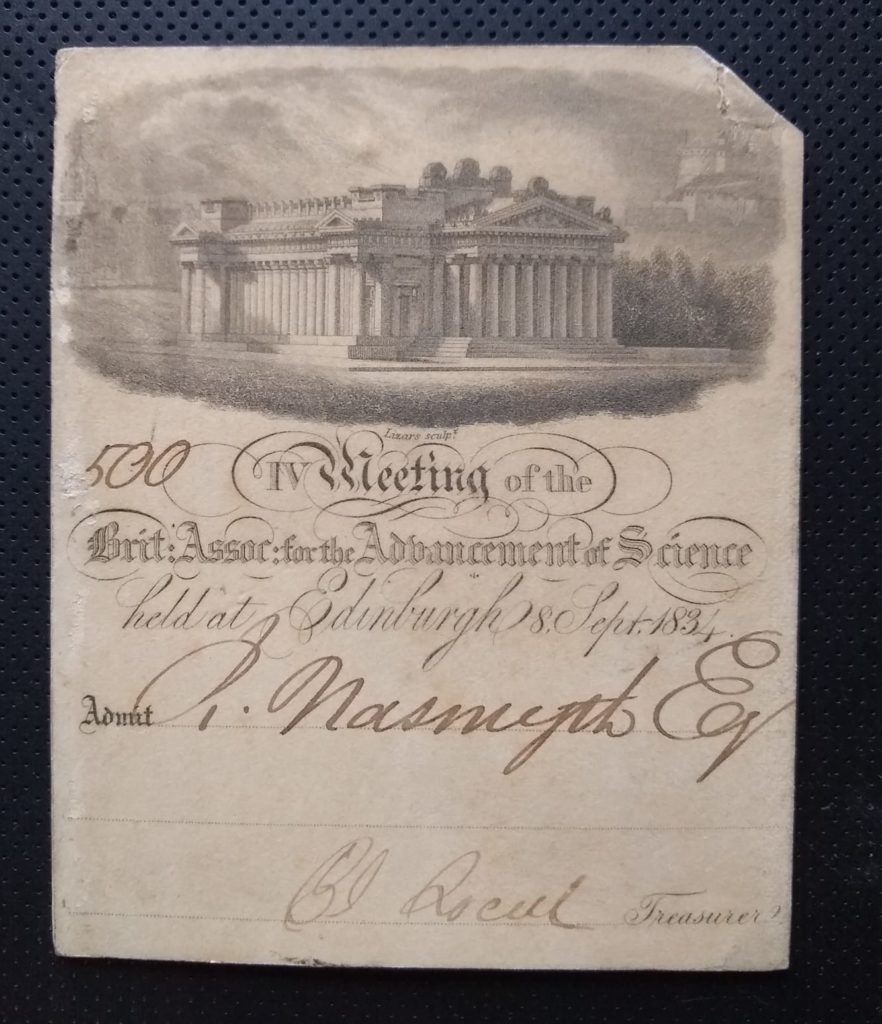 Lizars sculpt.
500 IV Meeting of the
Brit: Assoc: for the Advancement of Science
held at Edinburgh 8. Sept. 1834.
Admit Nasmyth Esq
Treasurer